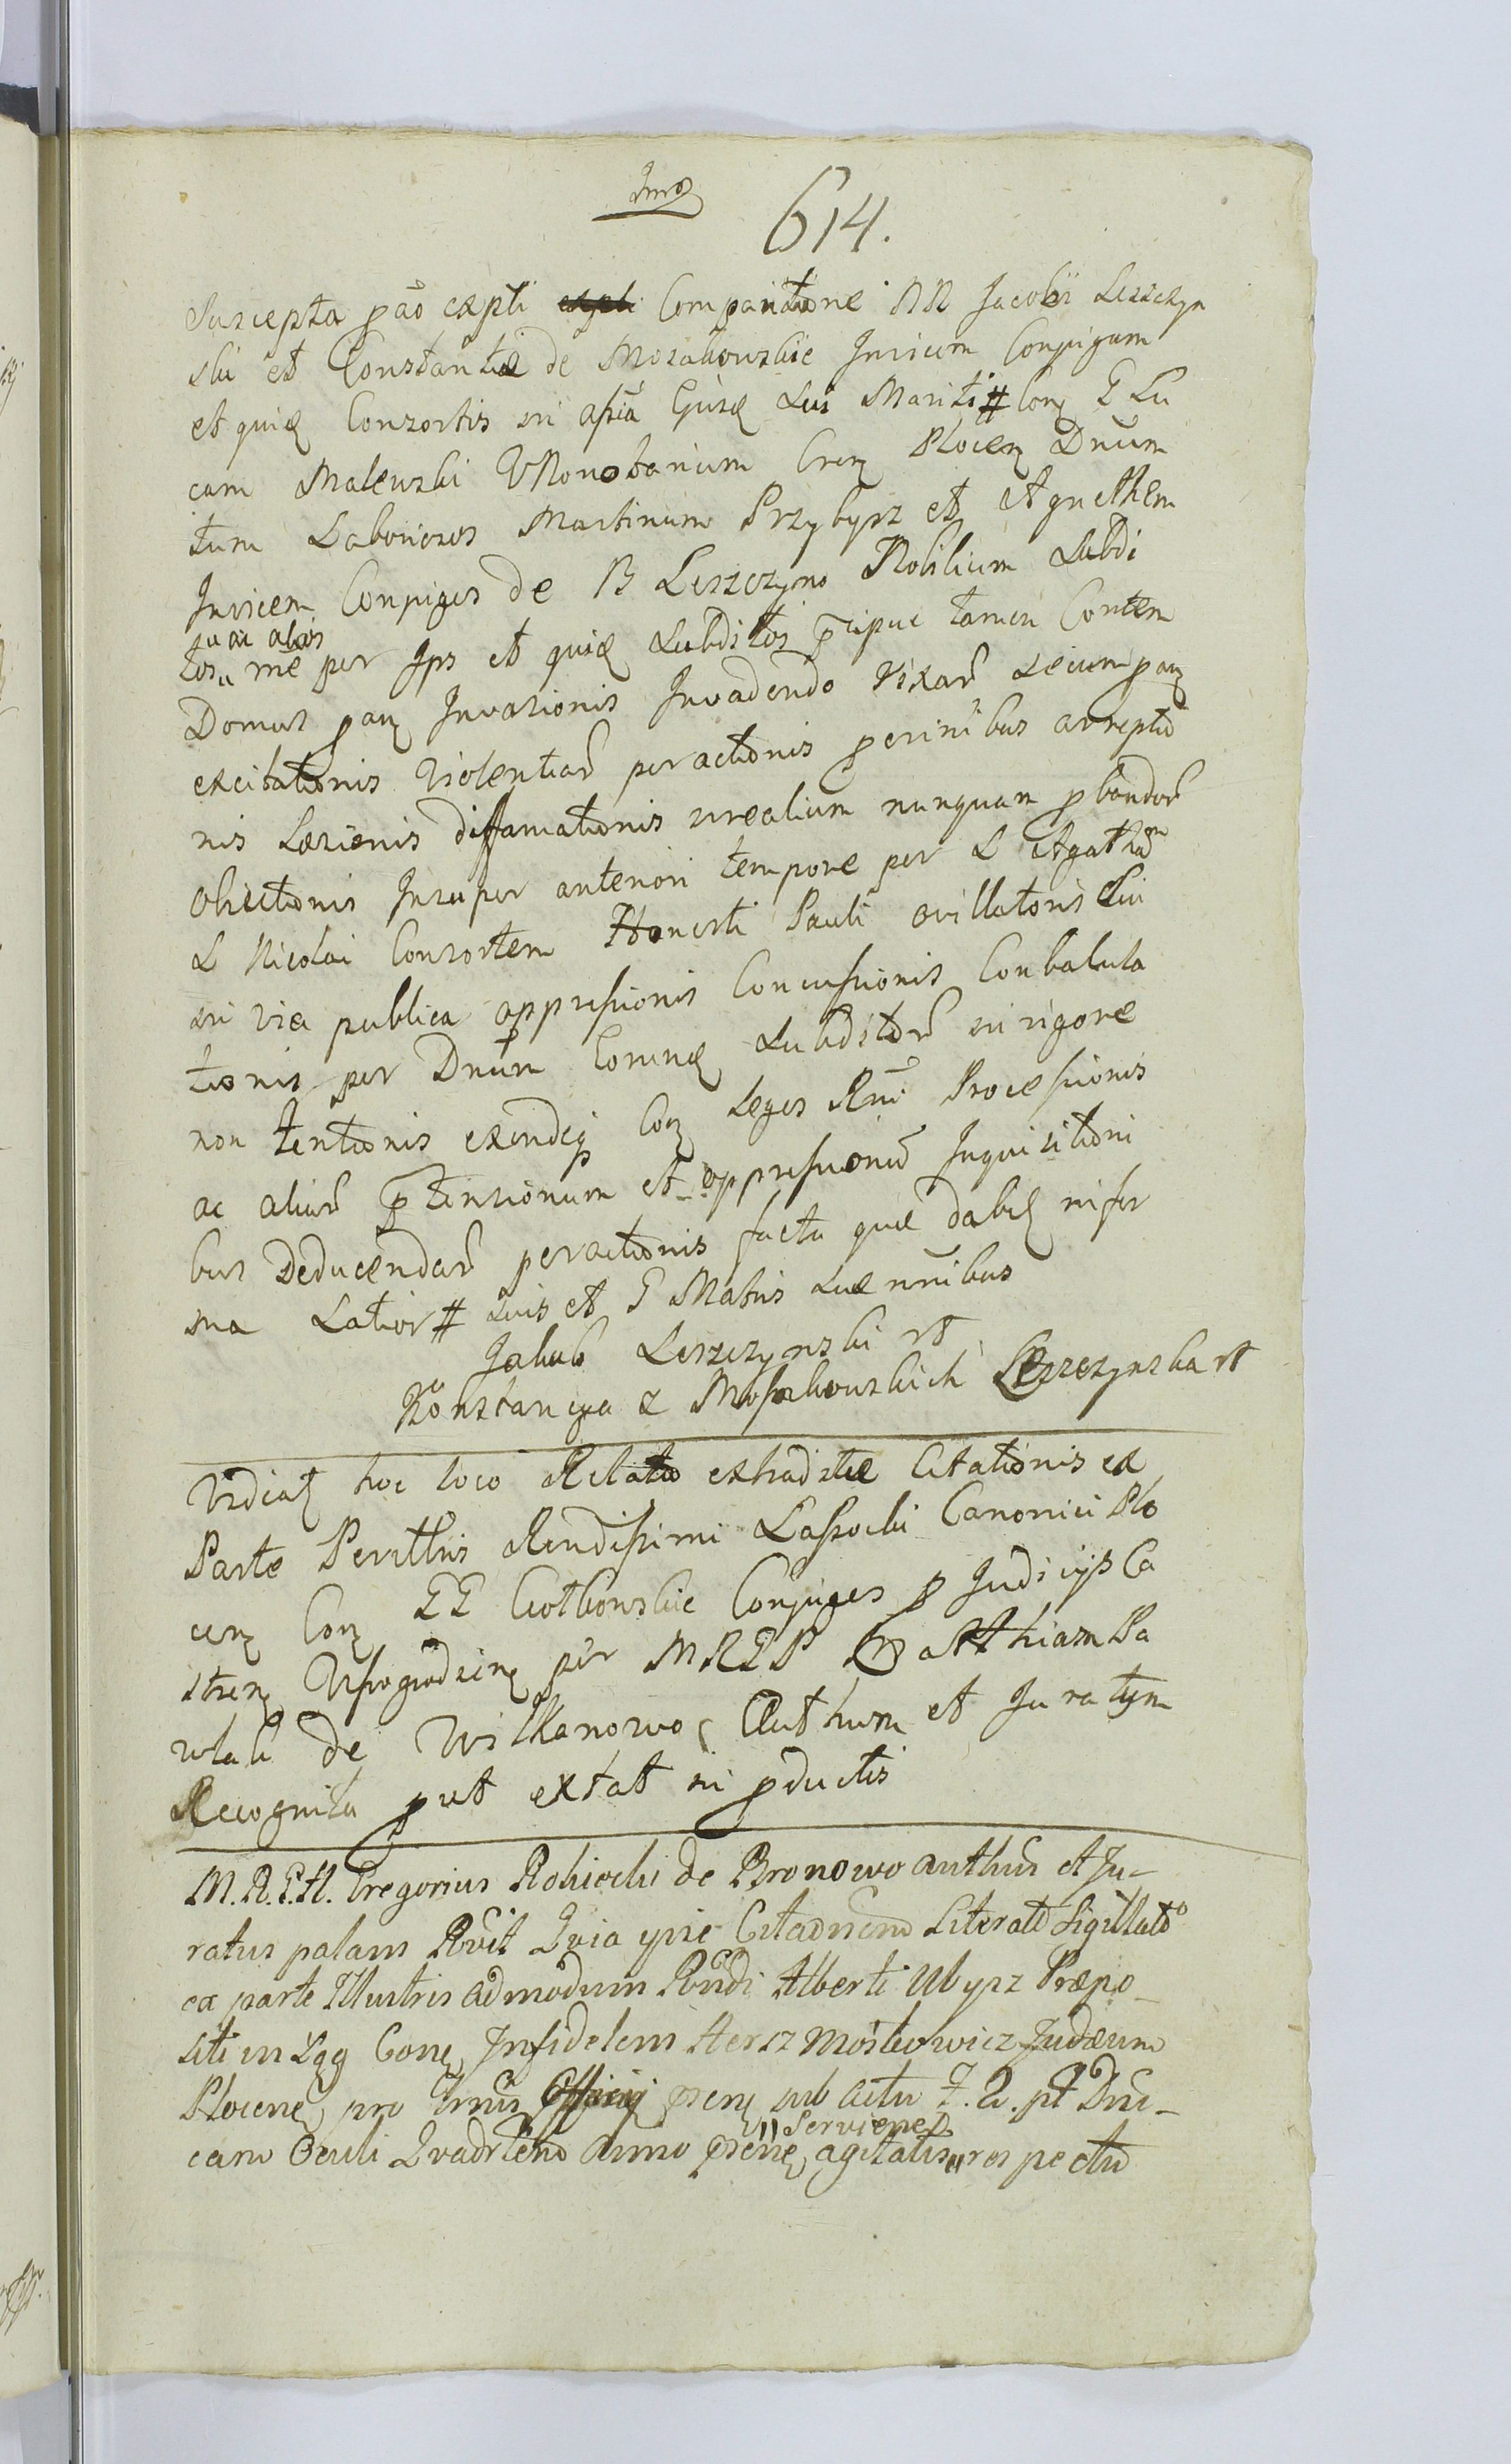 Img
614.
Suscepta pao expti Comparitione NN Jacobi Leszczyn
ski et Constantiæ de Mosakowskie Invicem Conjugum
et quidē Consortis in aſsiā Ejusd Sui Mariti # Conq G Lu
cam Malewski VNonotarium Cren Plocen Dnūm
tum Laboriosos Martinum Przybysz et Agnethem
Invicem Conjuges de B Leszczyno Nobilium Subdi
su ac alios
tos „ mē per Ips et quid Subditos pcipue tamen Contem
Domus pau Invasionis Invadendo rixar secum pau
excitationis Violentiar peractionis perinibus arreptio
nis Læsionis diffamationis realium nunquam pbandor
obiectionis Insuper anteriori tempore per L Agatham
L Nicolai Consortem Honesti Pauli ovillatoris Sui
in via publica oppreſsionis Concuſsionis Conbaluta
tionis per Dnum Connq Subditor in rigore
non tentionis exindeq Conq Leges Rni Proceſsionis
ac aliar ptensionum et oppreſsionū Inquisitioni
bus Deducendar peractionis facta quæ dabit nifor
ma Latior # suis et G Matris suæ nnibus
Jakub Leszczynski rt
Konstancya z Moſsakowskich Leszczynska rt
Videat hoc loco Relatio extraditæ Citationis ex
Parte Perillris Rendiſsimi Laſsocki Canonici Plo
cen Conq GG Conjuges p Judicijs Ca
stren Wyszogrodzien per MRGP Matthiam Pa
wlak de Wilkanowo Authum et Juratym
Recognita put extat in pductis
M. R. G. H. Gregorius Rokicki de Bronowo authūs et Ju-
ratus palam Rvit Quia ipse Citaōnem Literatō Sigillatō
ex parte Illustris admodum Rndi Alberti Ubysz Præpo-
siti in Łęg Conq Infidelem Hersz Moskowicz Judæum
Plocenē pro Trnis Officij psen sub actu F. Q. pt Dni-
„ Servienes
cam Oculi Qvadrlem anno psene agitatis „ respectu